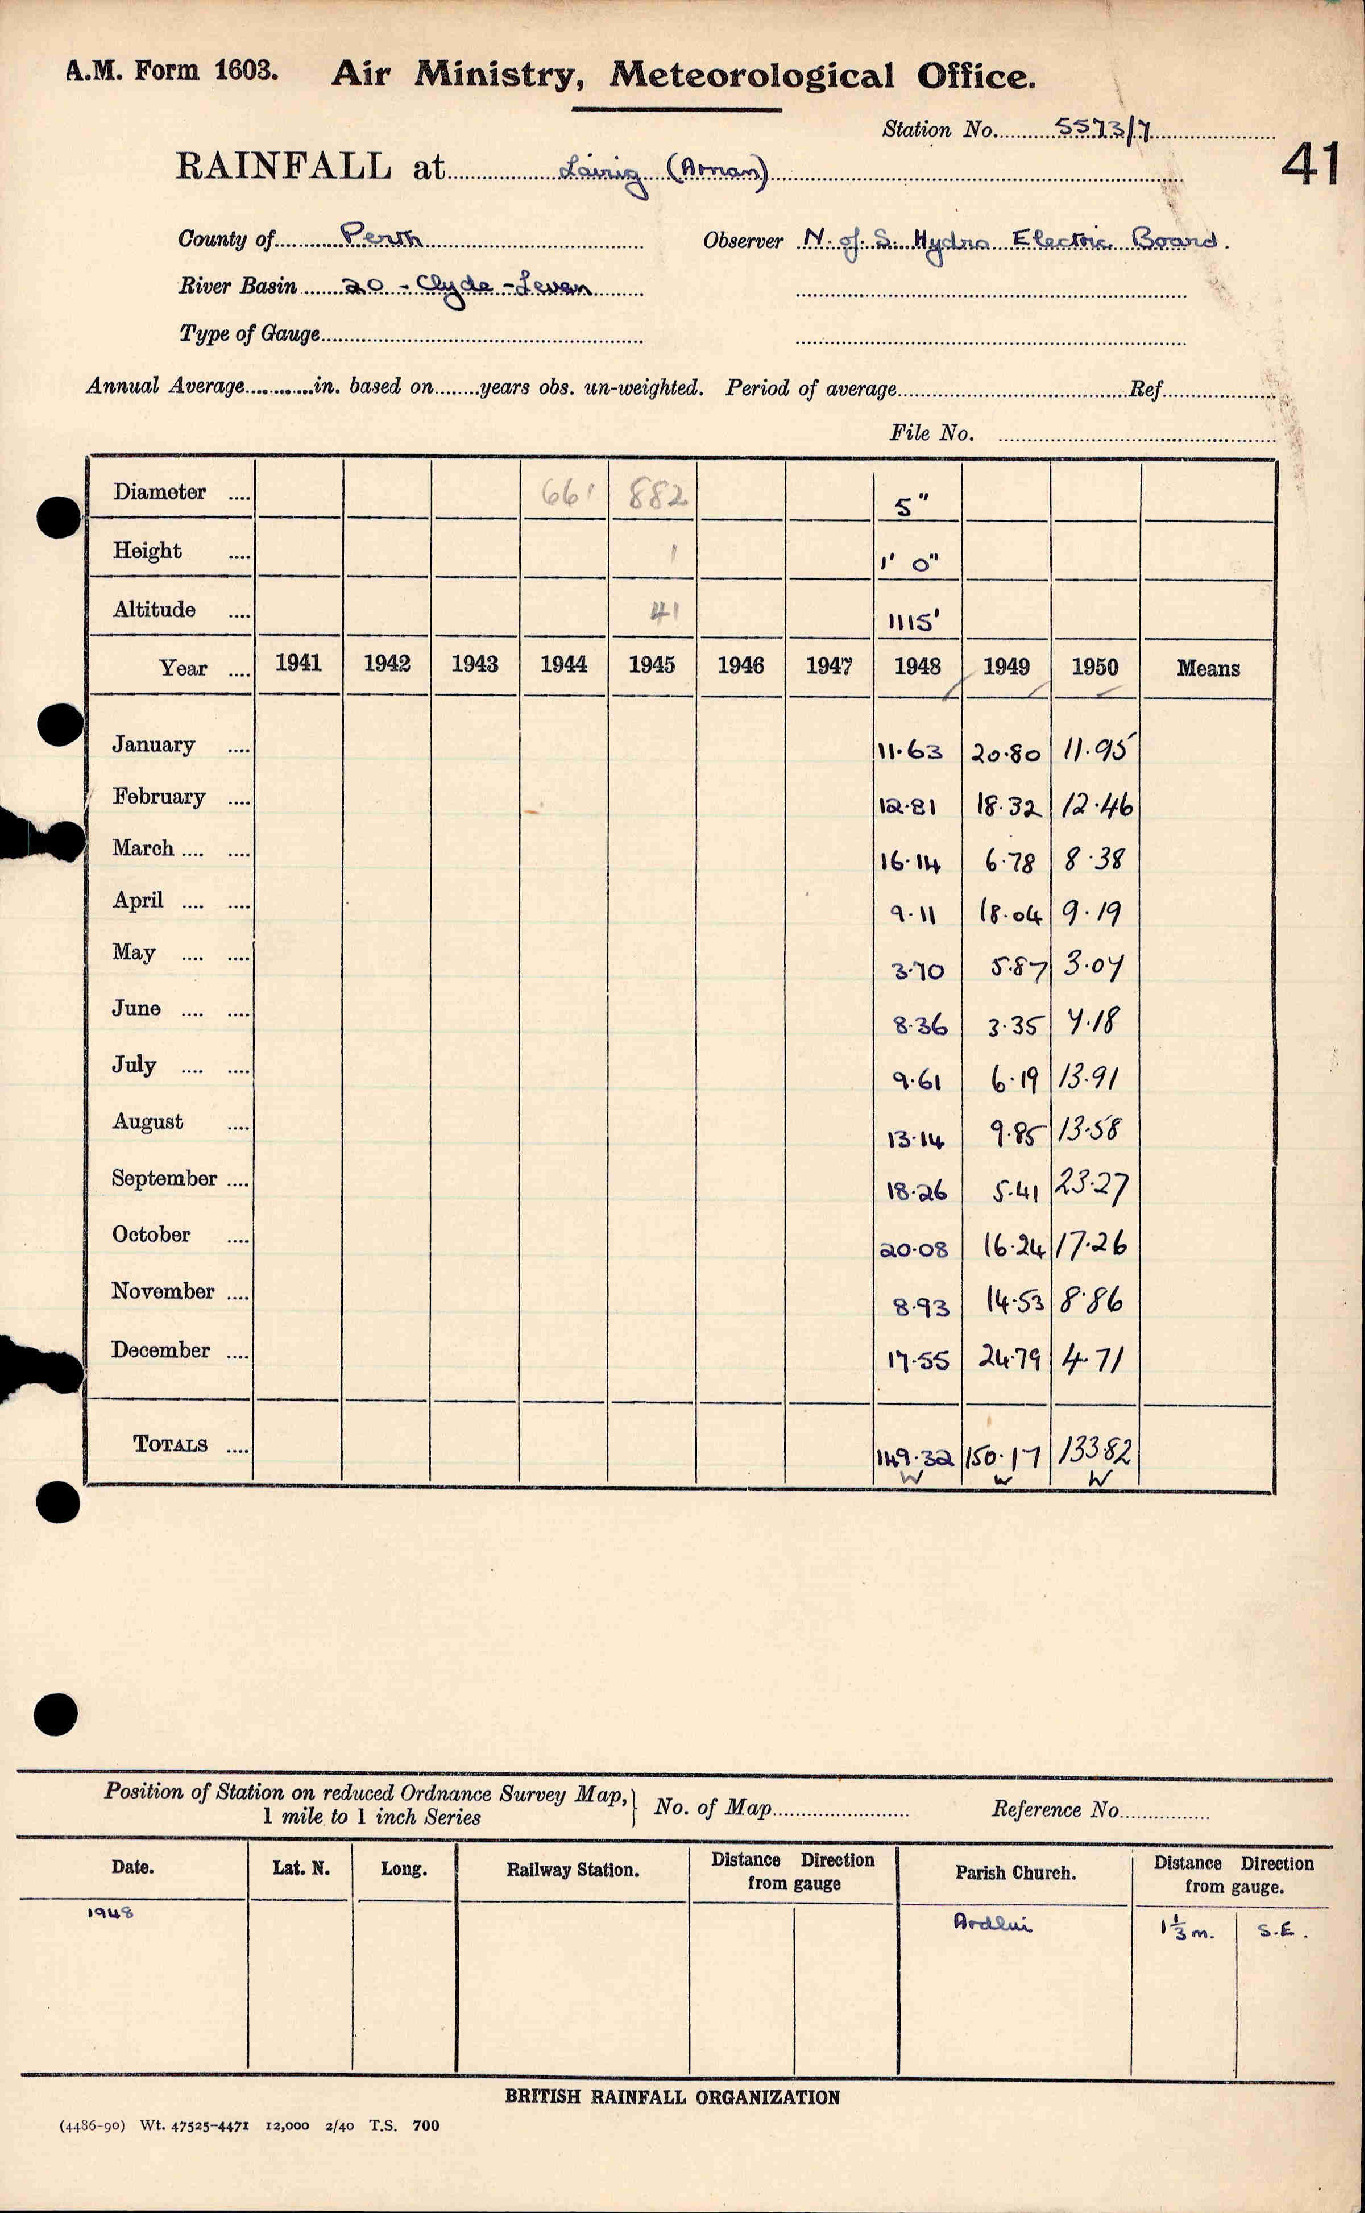 A.M. Form 1603. Air Ministry, Meteorological Office.
Station No. 5573/7
41
RAINFALL at Lairig (Arnan)
County of Perth Observer N. of S. Hydro Electric Board.
River Basin 20 - Clyde - Leven
Type of Gauge
Annual Average in. based on years obs. un-weighted. Period of average Ref
File No.
Diameter .... 661 882 5"
Height .... 1 1' 0"
Altitude .... 41 1115'
Year .... 1941 1942 1943 1944 1945 1946 1947 1948 1949 1950 Means
January .... 11.63 20.80 11.95
February .... 12.81 18.32 12.46
March .... .... 16.14 6.78 8.38
April .... .... 9.11 18.04 9.19
May .... .... 3.70 5.87 3.07
June .... .... 8.36 3.35 7.18
July .... .... 9.61 6.19 13.91
August .... 13.14 9.85 13.58
September .... 18.26 5.41 23.27
October .... 20.08 16.24 17.26
November .... 8.93 14.53 8.86
December .... 17.55 24.79 4.71
TOTALS .... 149.32 150.17 133.82
W W W
Position of Station on reduced Ordnance Survey Map, } No. of Map Reference No
1 mile to 1 inch Series
Date. Lat. N. Long. Railway Station. Distance Direction from gauge Parish Church. Distance Direction from gauge.
1948 Ardlui 1 1/3 m. S.E.
BRITISH RAINFALL ORGANIZATION
(4486-90) Wt. 47525-4471 12,000 2/40 T.S. 700